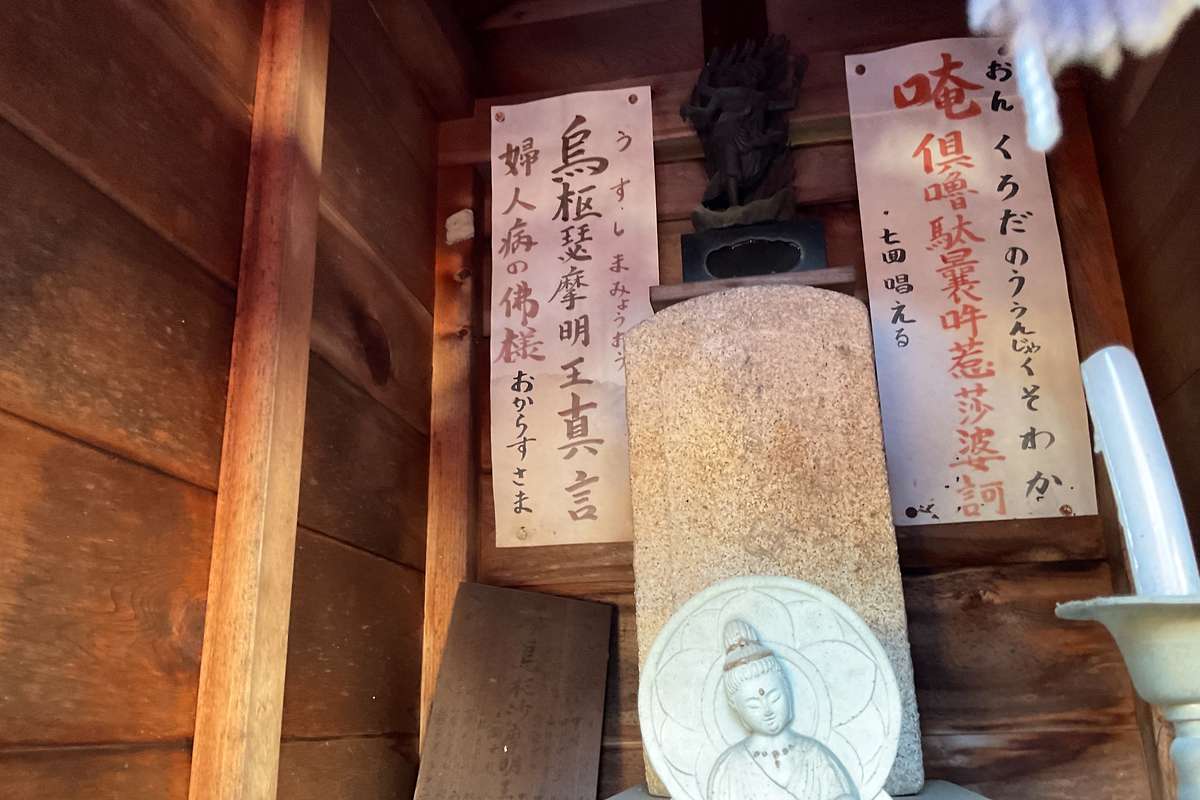 おん くろだのううんじゃくそわか
唵 倶嚕駄曩吽惹莎婆訶
・七回唱える
うすしまみょうおう
烏枢瑟摩明王真言
婦人病の佛様 おからすさま